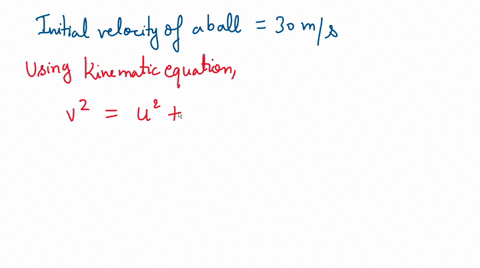 Initial velocity of a ball = 30 m/s
Using Kinematic equation,
v² = u² +